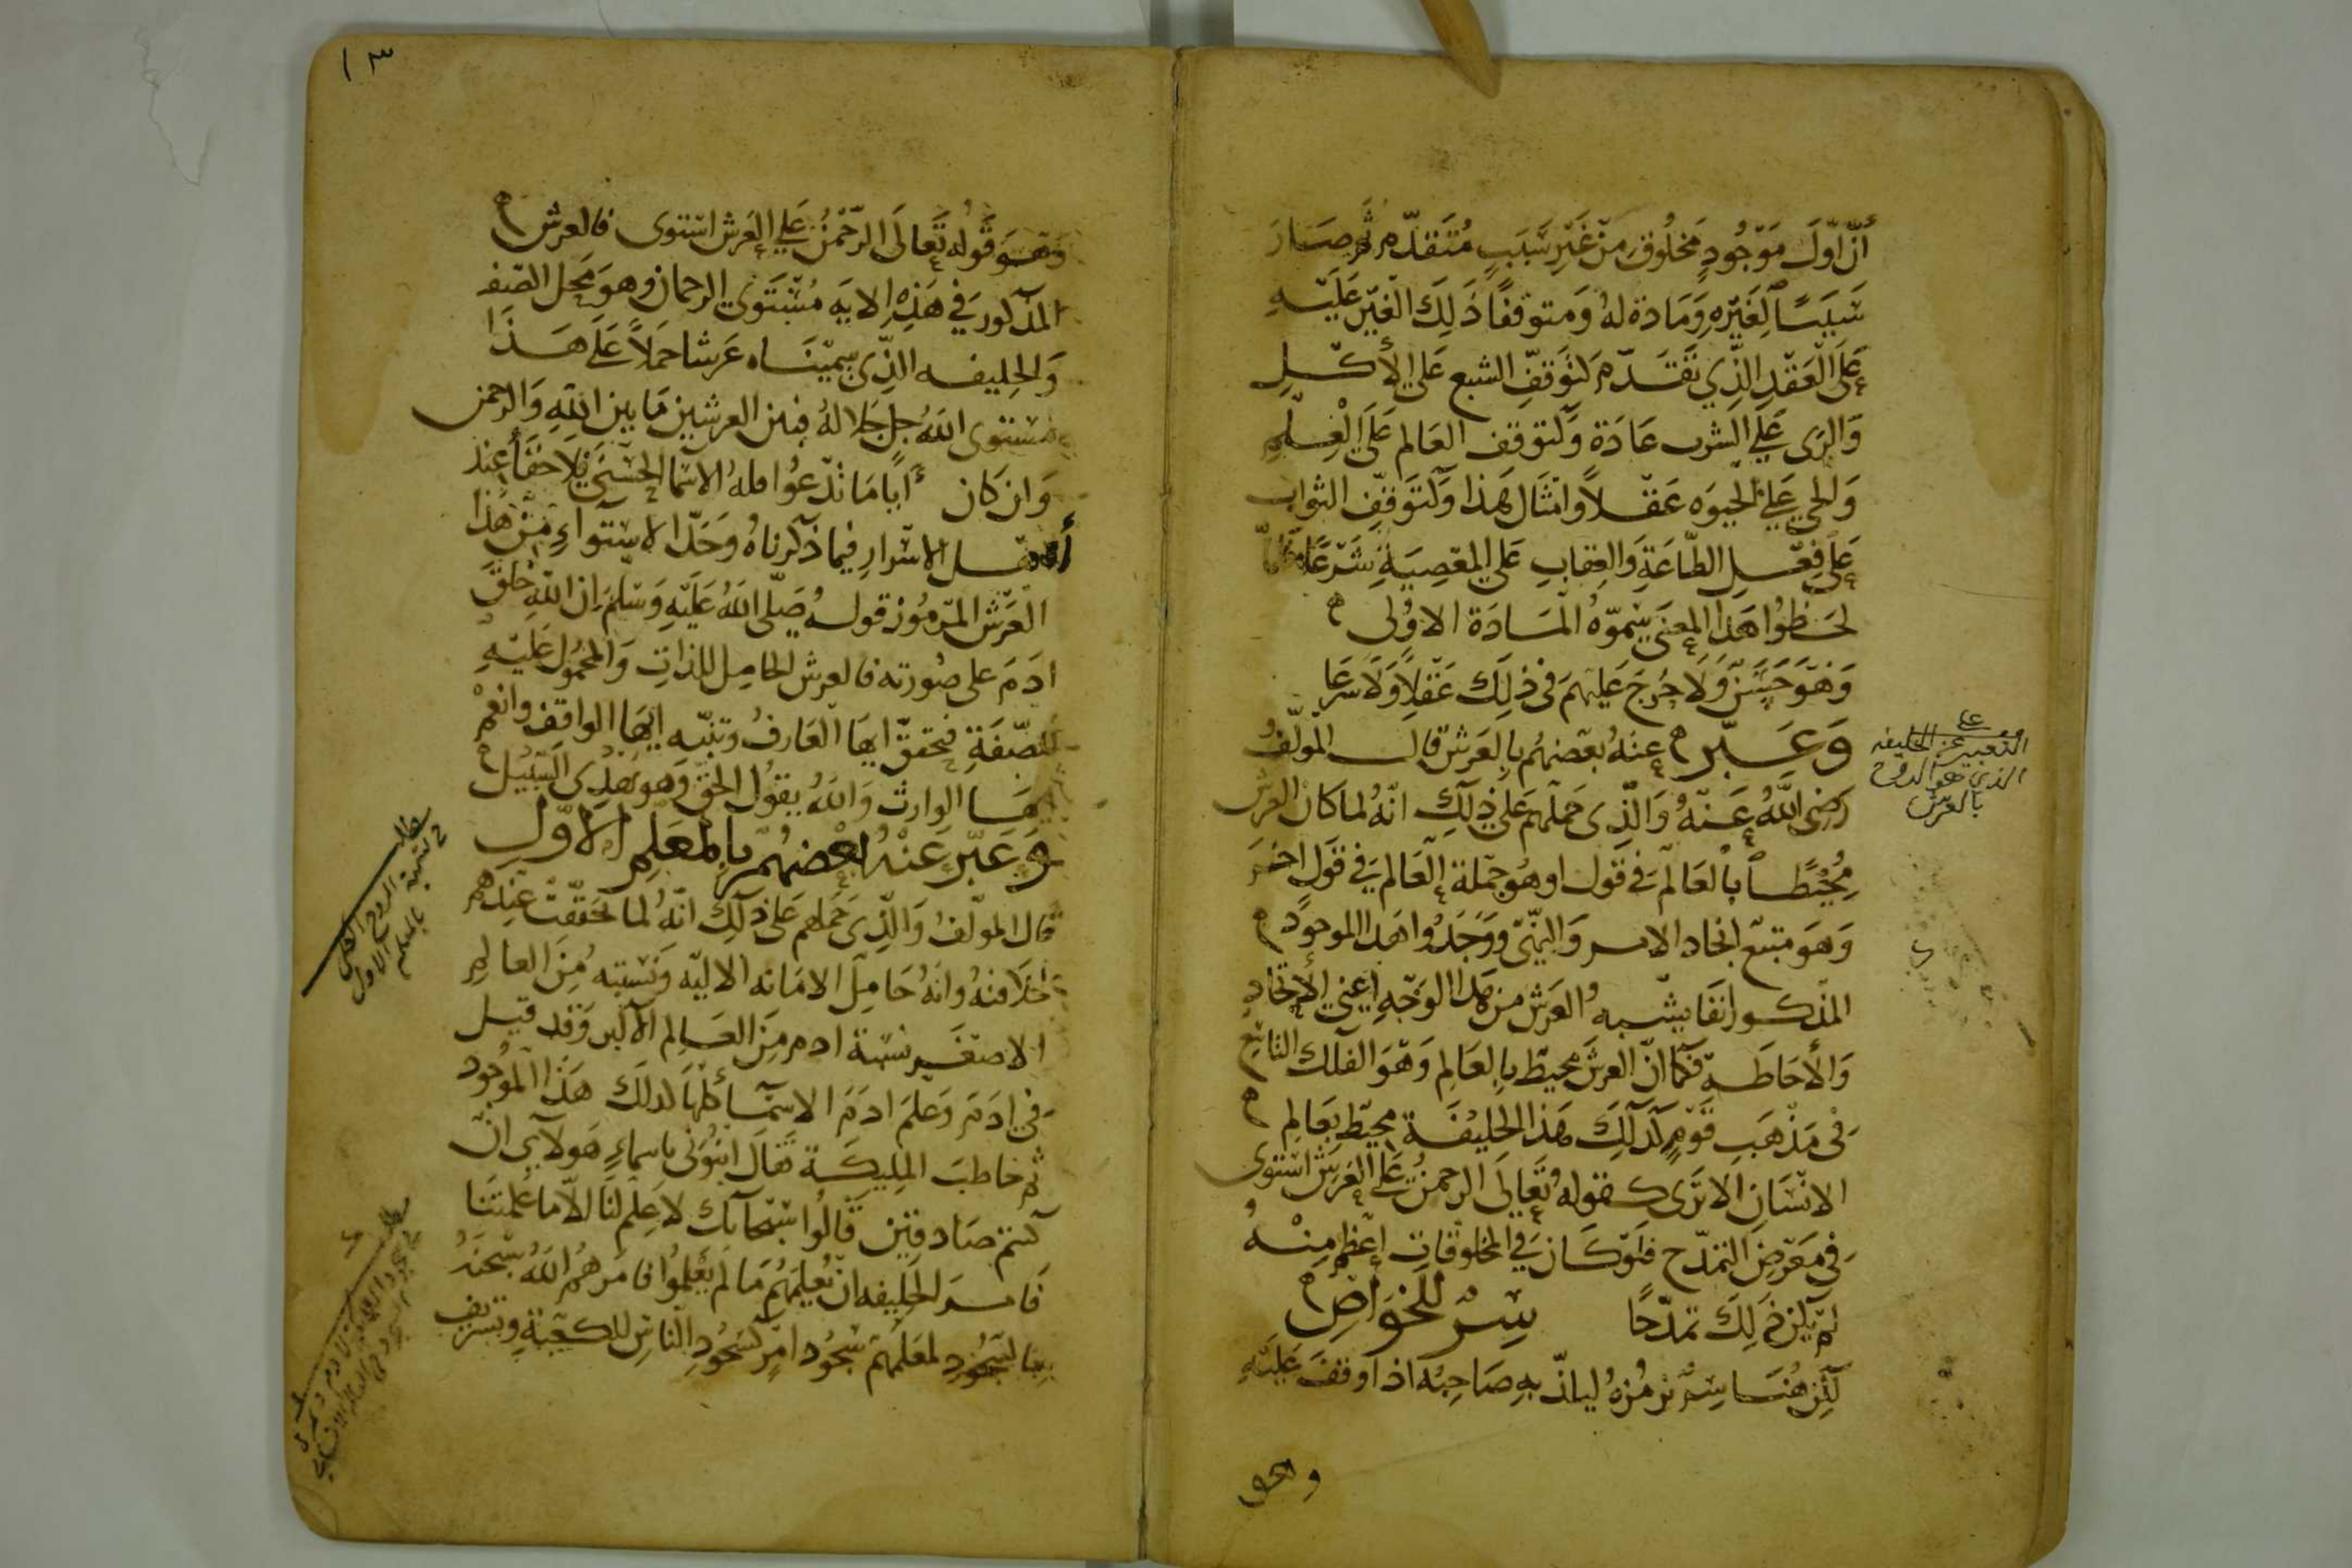 أنّ اوّل موجود مخلوق من غير سبب متقدّم ثم صار
سببًا لغيره ومادة له ومتوقفًا ذلك الغير عليه
على العقد الذي تقدّم كتوقّف الشبع على الأكل
والرى على الشرب عادة وكتوقف العالم على العلم
والحي على الحيوه عقلاً وامثال هذا وكتوقف الثواب
على فعل الطاعة والعقاب على المعصية شرعًا
لحظوا هذا المعنى سمّوه المادة الاولى
وهو حسن ولا حرج عليهم في ذلك عقلاً ولا شرعا
وعبّر عنه بعضهم بالعرش قال المولّف
رضى الله عنه والذى حملهم على ذلك انّه لما كان العرش
محيطًا بالعالم في قول او هو جملة العالم في قول اخر
وهو منبع ايجاد الامر والنهى ووجدوا هذا الموجود
المذكور انفا يشبه العرش من هذا الوجه اعني الايجاد
والأحاطة فكما انّ العرش محيط بالعالم وهو الفلك التاسع
في مذهب قوم كذلك هذا الخليفة محيط بعالم
الانسان الا ترى كقوله تعالى الرحمن على العرش استوى
في معرض التمدّح فلو كان في المخلوقات اعظم منه
لم يكن ذلك تمدّحًا سرّ للخواص
لكن هنا سرّ نرمزه ليلذّ به صاحبه اذا وقف عليه
وهو
على
التعبير عن الخليفه
الذي هو الروح
بالعرش
١٣
وهو قوله تعالى الرحمن على العرش استوى فالعرش
المذكور في هذه الايه مستوى الرحمان وهو محل الصفه
والخليفه الذّى سميناه عرشا حملاً على هذا
مستوى الله جل جلاله فبين العرشين ما بين الله والرحمن
وان كان أيًا ما تدعوا فله الاسما الحسنى فلا خفأ عند
أهل الاسرار فيما ذكرناه وحدّ الاستواء من هذا
العرش المرموز قوله صلّى الله عليه وسلم ان الله خلق
ادم على صورته فالعرش الحامل للذات والمحمول عليه
للصّفة فتحقق ايها العارف وتنبّه ايها الواقف وانعم
ايها الوارث والله يقول الحق وهو يهدى السبيل
وعبّر عنه بعضهم بالمعلم الاوّل
قال المولّف والذّى حملهم على ذلك انّه لما تحققت عندهم
خلافته وانه حامل الامانه الالهيّه ونسبته من العالم
الاصغر نسبة ادم من العالم الاكبر وقد قيل
في ادم وعلم ادم الاسمآ كلها كذلك هذا الموجود
ثم خاطب المليكة فقال انبئونى باسماء هولآء ان
كنتم صادقين قالوا سبحانك لا علم لنا الاّ ما علمتنا
فامر الخليفه ان يعلمهم ما لم يعلموا فامرهم الله سبحنه
بالسجود لمعلمهم سجود امر كسجود الناس للكعبة وتشريف
مطلب
تسمية الروح الكلي
بالمعلم الاول
مطلب